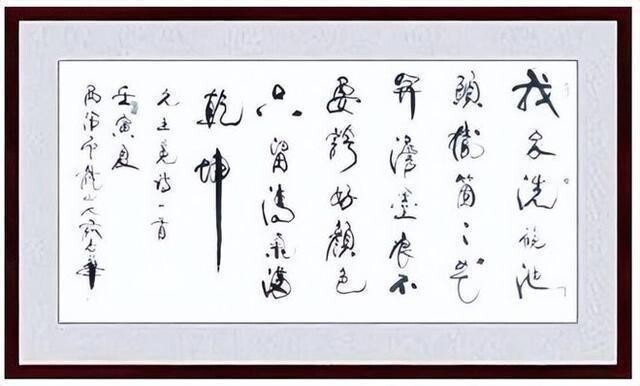 我家洗硯池
頭樹箇々花
開澹墨痕不
要誇好顏色
只留清氣滿
乾坤
元王冕詩一首
壬寅夏
龍山人